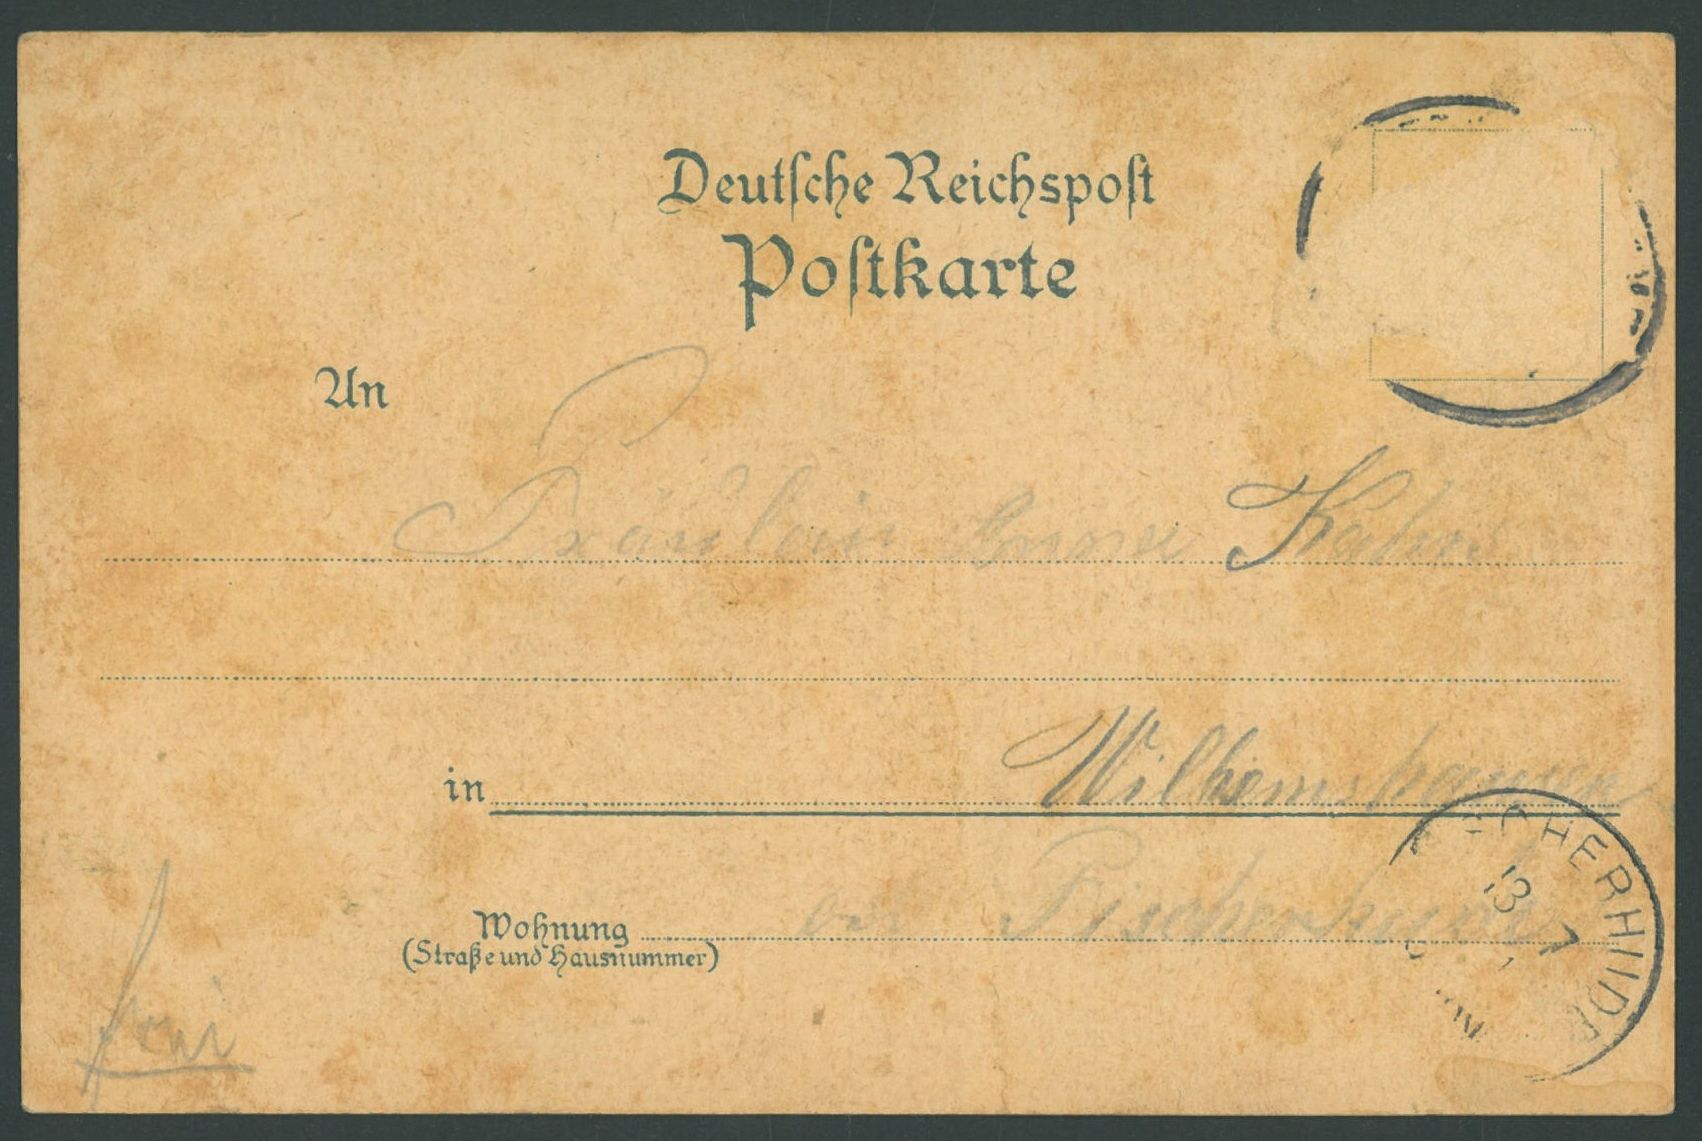 Deutsche Reichspost
Postkarte
An
Fräulein Anna
in Wilhemshausen
Wohnung bei Fischerhude
(Straße und Hausnummer)
SCHERHUDE
13 7
frei